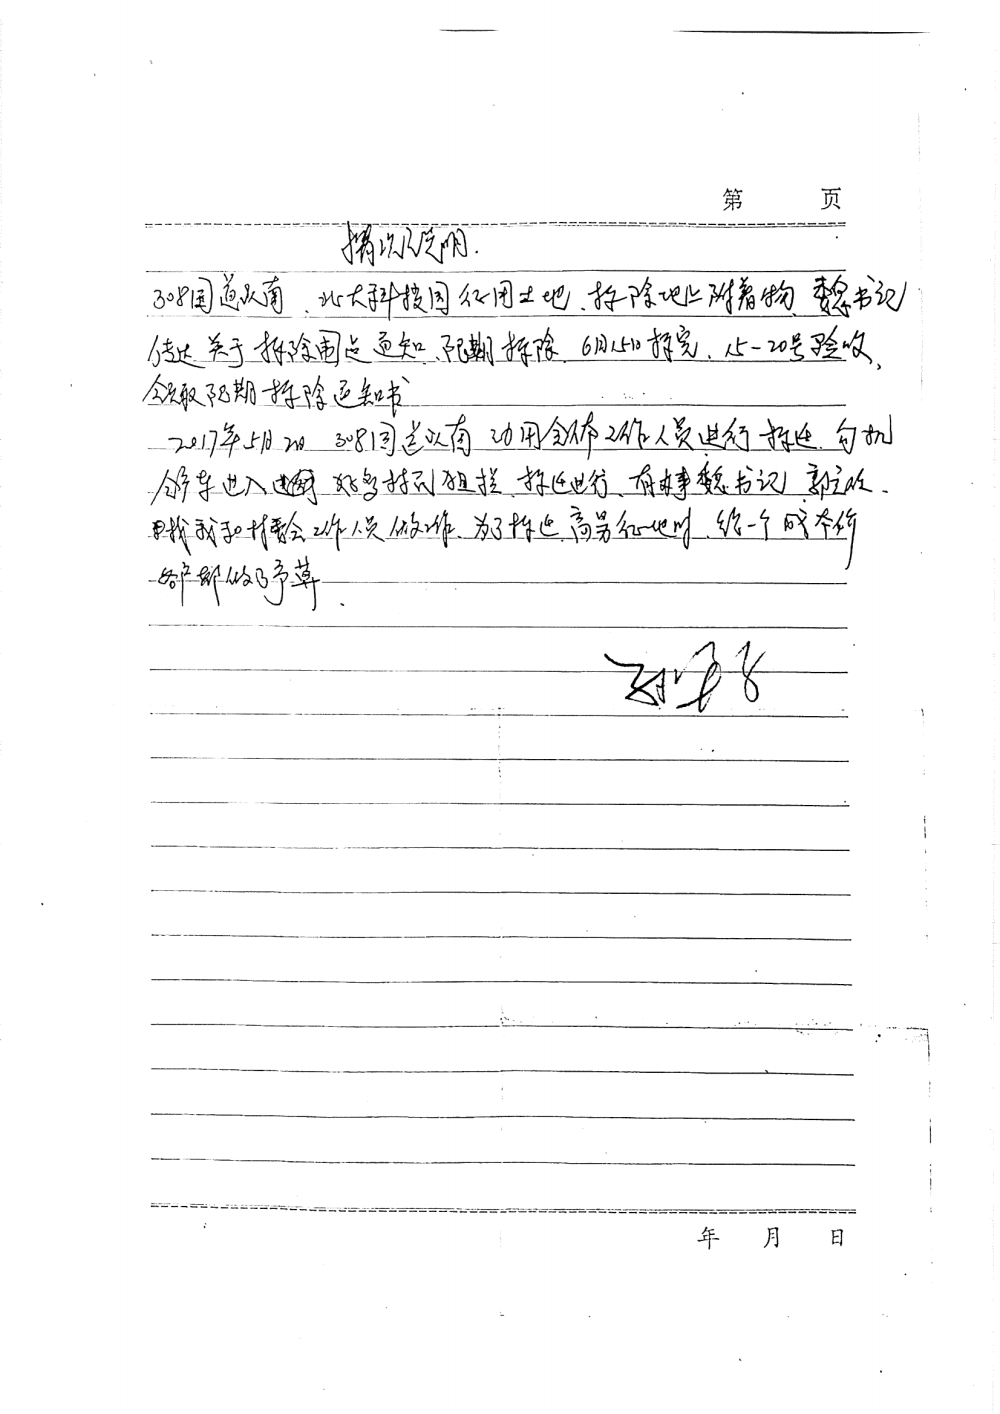 第 页
情况说明.
308国道以南、北大科技园征用土地、拆除地上附着物、魏书记
传达关于拆除通知、限期拆除、6月15日拆完、15-20号验收、
领取限期拆除通知书
2017年5月2日 308国道以南 动用全体工作人员进行拆迁、勾机
铲车进入 阻拦、拆迁进行、魏书记 郭主改、
找我和村委会工作人员做工作、为了拆迁、征地时、给一个成本价
各户都做了
年 月 日